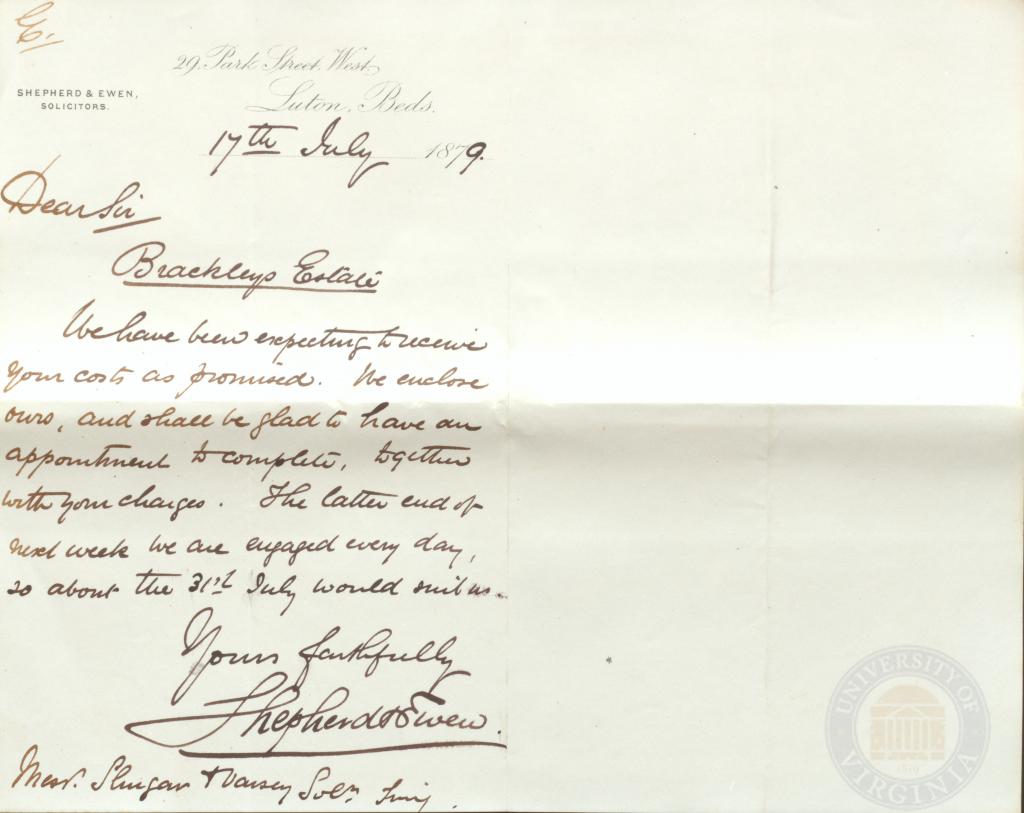 E.
29, Park Street West,
Luton, Beds.
SHEPHERD & EWEN,
SOLICITORS.
17th July 1879.
Dear Sir
Brackleys Estate
We have been expecting to receive
your costs as promised. We enclose
ours, and shall be glad to have an
appointment to complete, together
with your charges. The latter end of
next week we are engaged every day,
so about the 31st July would suit us.
Yours faithfully
Shepherd & Ewen.
Messrs. & Solrs
UNIVERSITY OF VIRGINIA
1819